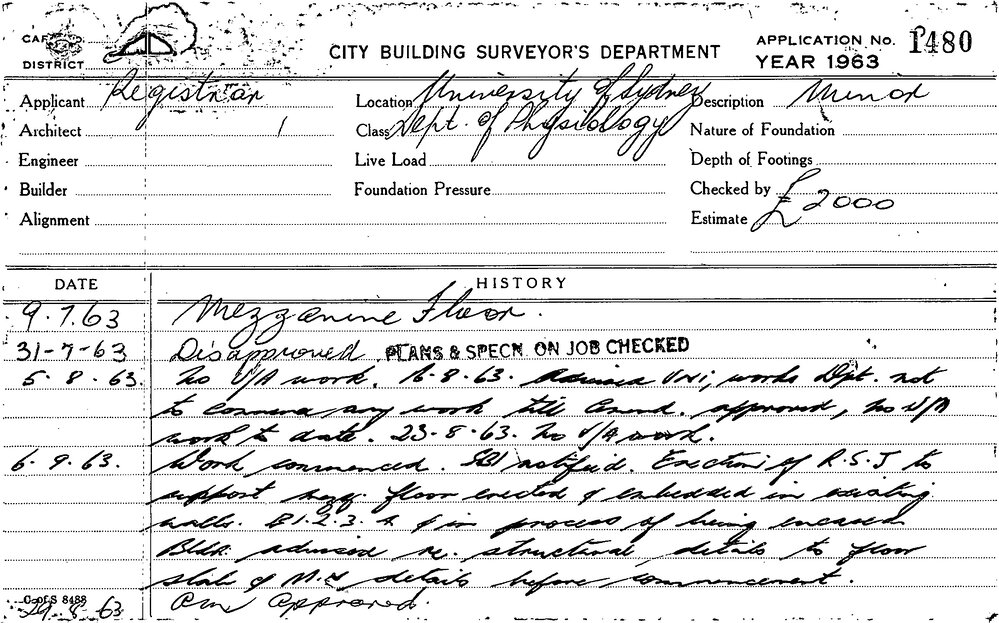 DISTRICT
CITY BUILDING SURVEYOR'S DEPARTMENT
APPLICATION No. 1480
YEAR 1963
Applicant Registrar
Location University of Sydney
Description Minor
Architect
Class Dept. of Physiology
Nature of Foundation
Engineer
Live Load
Depth of Footings
Builder
Foundation Pressure
Checked by
Alignment
Estimate £2000
DATE HISTORY
9.7.63 Mezzanine Floor.
31-7-63 Disapproved PLANS & SPECN. ON JOB CHECKED
5.8.63. No U/A work. 16-8-63. Advised Uni; works Dpt. not
to commence any work till Council approved, no U/A
work to date. 23-8-63. No U/A work.
6.9.63. Work commenced. SBI notified. Erection of R.S.J to
support mezz. floor erected & embedded in existing
walls. B1.2.3.4 & in process of being encased
Bldr. advised re. structural details to floor
slab & details before commencement.
C. of S 8488
29.8.63 Approved.